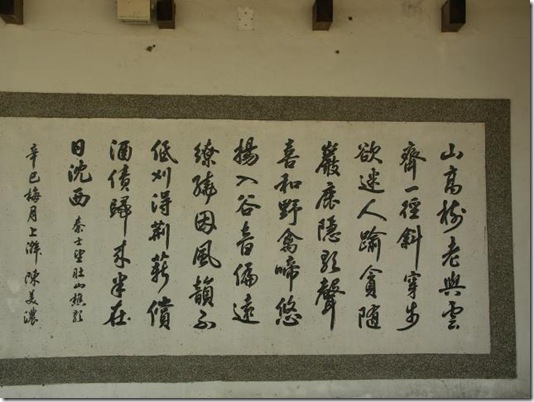 山高樹老與雲
齊一徑斜穿步
欲迷人踰貪隨
巖鹿隱歌聲
喜和野禽啼悠
揚入谷音偏遠
繚繞因風韻不
低刈得荊薪償
酒債歸來半在
日沈西 秦士望肚山樵歌
辛巳梅月上澣 陳美濃